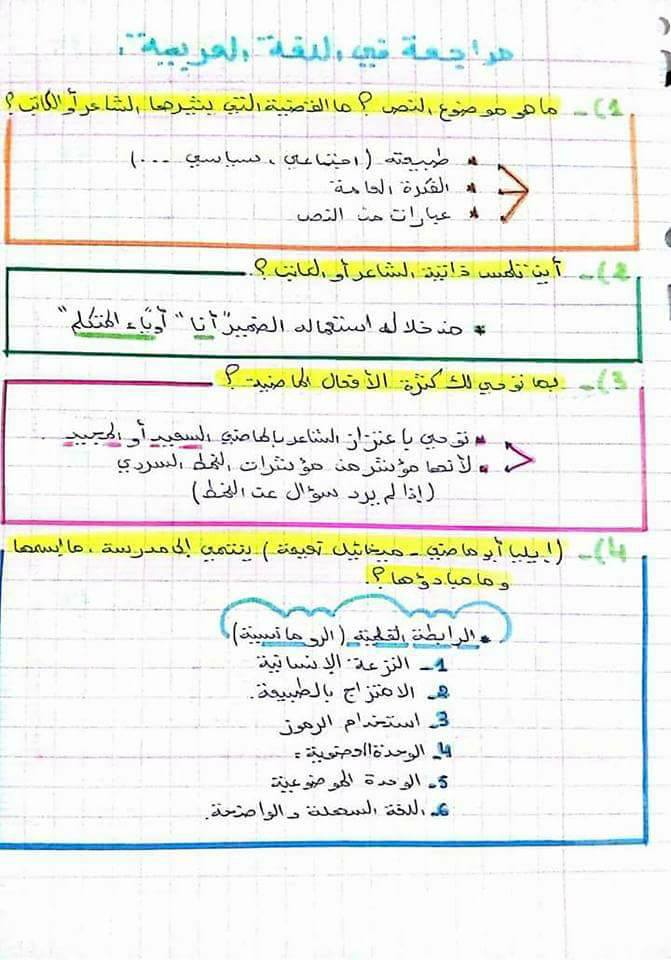 مراجعة في اللغة العربية:
1)- ما هو موضوع النص؟ ما القضية التي يثيرها الشاعر أو الكاتب؟
* طبيعته (اجتماعي، سياسي ...)
* الفكرة العامة
* عبارات من النص
2)- أين تلمس ذاتية الشاعر أو الكاتب؟
* من خلال استعماله الضمير "أنا" أو "ياء المتكلم"
3)- بما توحي لك كثرة الأفعال الماضية؟
* توحي باعتزاز الشاعر بالماضي السعيد أو المجيد
* لأنها مؤشر من مؤشرات النمط السردي
(إذا لم يرد سؤال عن النمط)
4)- (إيليا أبو ماضي - ميخائيل نعيمة) ينتمي إلى مدرسة، ما اسمها
وما مبادؤها؟
* الرابطة القلمية (الرومانسية)
1- النزعة الإنسانية
2- الامتزاج بالطبيعة.
3- استخدام الرموز
4- الوحدة العضوية.
5- الوحدة الموضوعية
6- اللغة السهلة والواضحة.